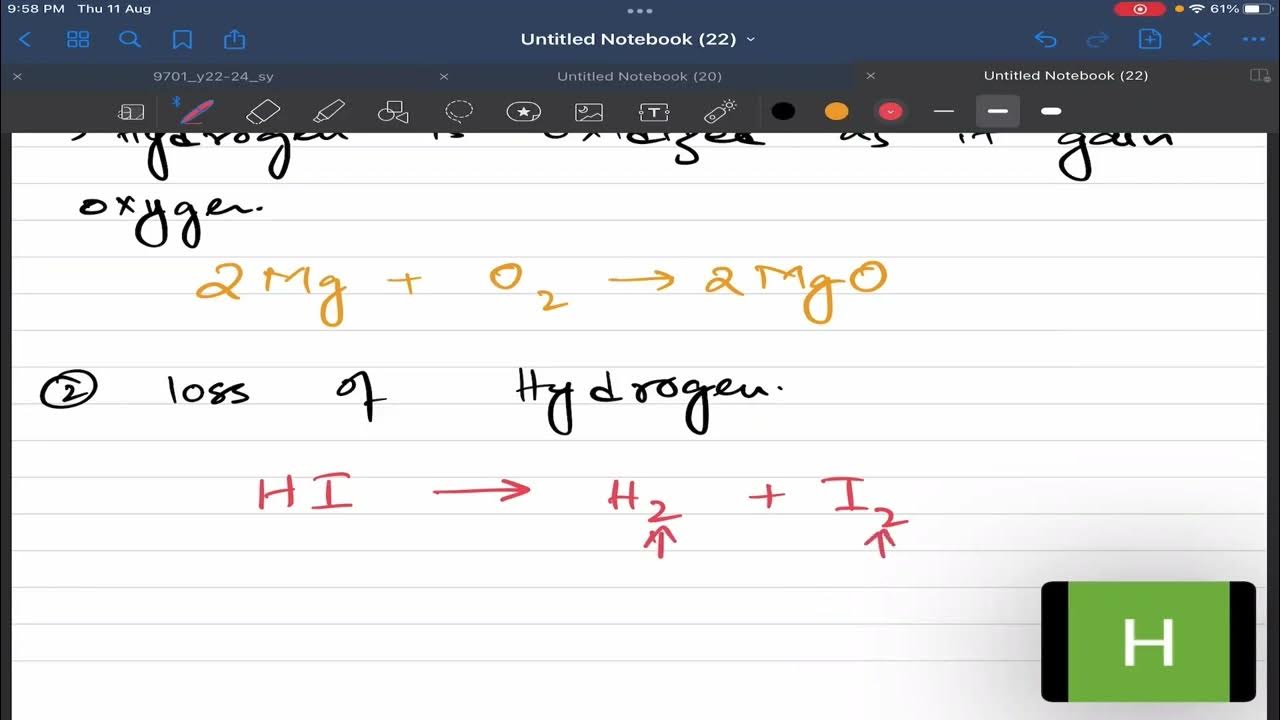 9:58 PM Thu 11 Aug
61%
Untitled Notebook (22)
9701_y22-24_sy
Untitled Notebook (20)
Untitled Notebook (22)
Hydrogen is oxidized as it gain
oxygen.
2Mg + O₂ → 2MgO
② loss of Hydrogen.
HI → H₂ + I₂
↑ ↑
H